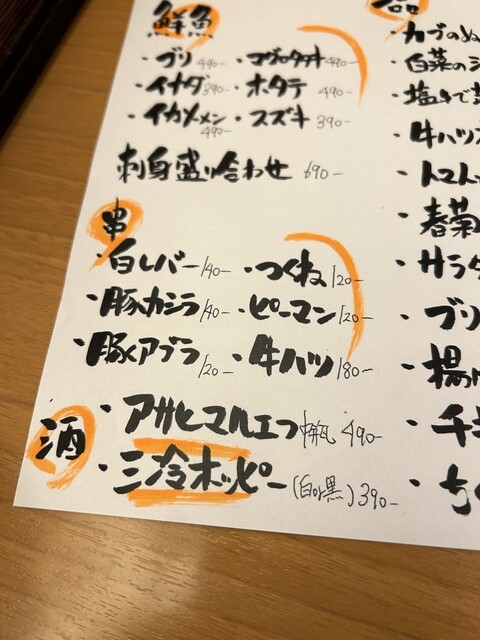 鮮魚
・ブリ 490- ・マグロタタキ 490-
・イナダ 390- ・ホタテ 490-
・イカメンメン 490- ・スズキ 390-
刺身盛り合わせ 690-
串
・白レバー 140- ・つくね 120-
・豚カシラ 140- ・ピーマン 120-
・豚アブラ 120- ・牛ハツ 180-
酒
・アサヒマルエフ 中瓶 490-
・三冷ホッピー(白or黒) 390-
品
・カブのぬ
・白菜の
・塩ゆで
・牛ハツ
・トマト
・春菊
・サラダ
・ブリ
・揚げ
・ち